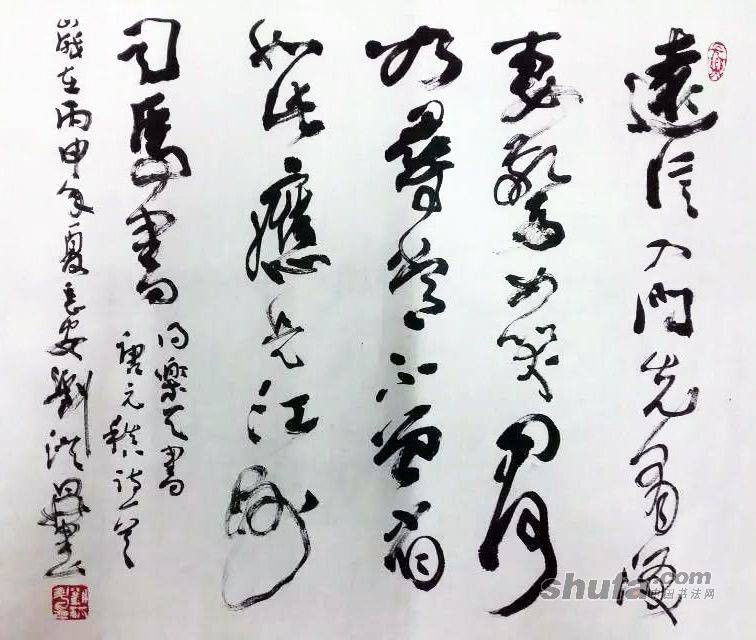 遠信入門先有淚
妻驚女哭問何
如尋常不曾省
如此應是江州
司馬書
得樂天書
唐元稹詩一首
歲在丙申年夏長安劉
shufa.com
中国书法网